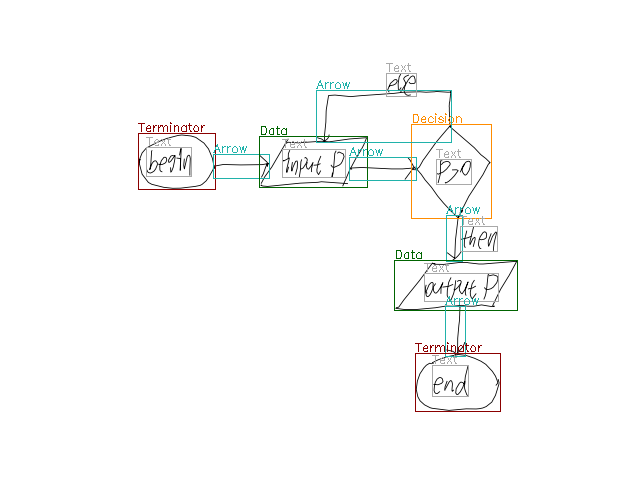 Text
else
Arrow
Decision
Terminator
Text
begin
Arrow
Data
Text
input P
Arrow
Text
P>0
Arrow
Text
then
Data
Text
output P
Arrow
Terminator
Text
end